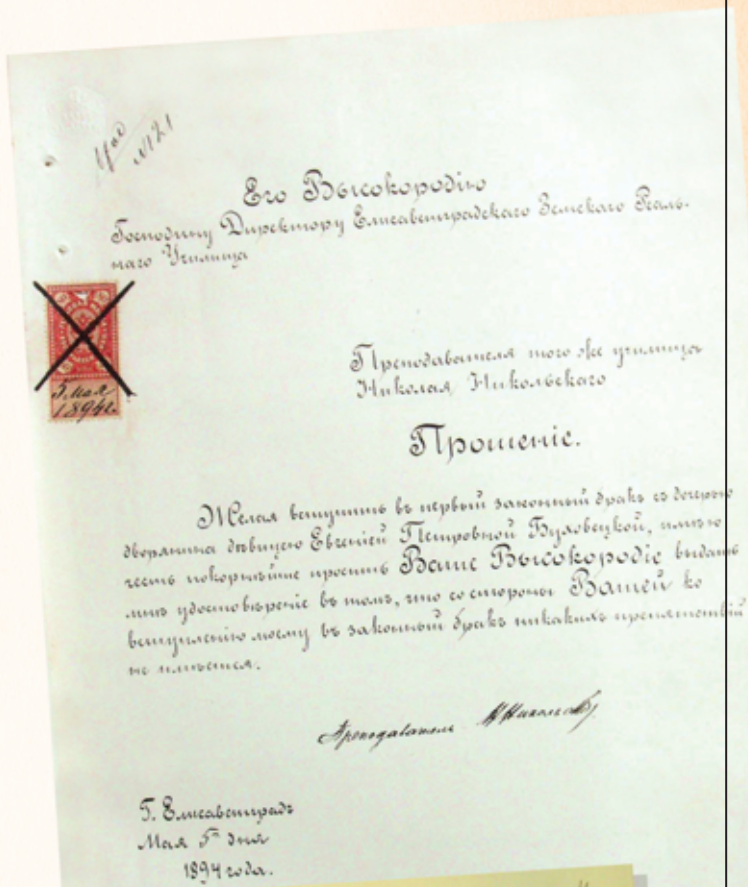 №121
Его Высокородію
Господину Директору Елисаветградскаго Земскаго Реаль-
наго Училища
Преподавателя того же училища
Николая Никольскаго
5 Мая
1894г.
Прошеніе.
Желая вступить въ первый законный бракъ съ дочерью
дворянина дѣвицею Евгеніей Петровной Буловецкой, имѣю
честь покорнѣйше просить Ваше Высокородіе выдать
мнѣ удостовѣреніе въ томъ, что со стороны Вашей ко
вступленію моему въ законный бракъ никакихъ препятствій
не имѣется.
Преподаватель
Г. Елисаветградъ
Мая 5го дня
1894 года.